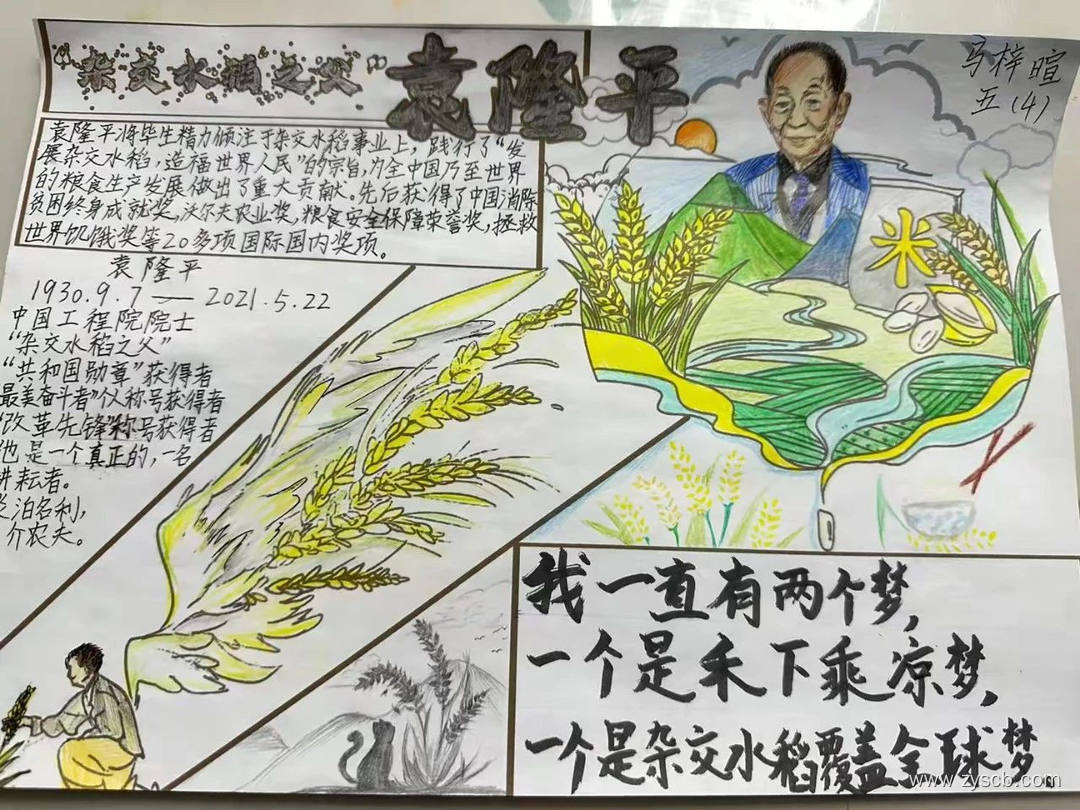 "杂交水稻之父"袁隆平
马梓暄
五(4)
袁隆平将毕生精力倾注于杂交水稻事业上，践行了“发
展杂交水稻，造福世界人民”的宗旨，为全中国乃至世界
的粮食生产发展做出了重大贡献。先后获得了中国消除
贫困终身成就奖，沃尔夫农业奖，粮食安全保障荣誉奖，拯救
世界饥饿奖等20多项国际国内奖项。
袁隆平
1930.9.7——2021.5.22
中国工程院院士
“杂交水稻之父”
“共和国勋章”获得者
最美奋斗者”亿称号获得者
“改革先锋”称号获得者
他是一个真正的，一名
耕耘者。
泊名利，
介农夫。
米
我一直有两个梦，
一个是禾下乘凉梦，
一个是杂交水稻覆盖全球梦。
www.zyscb.com